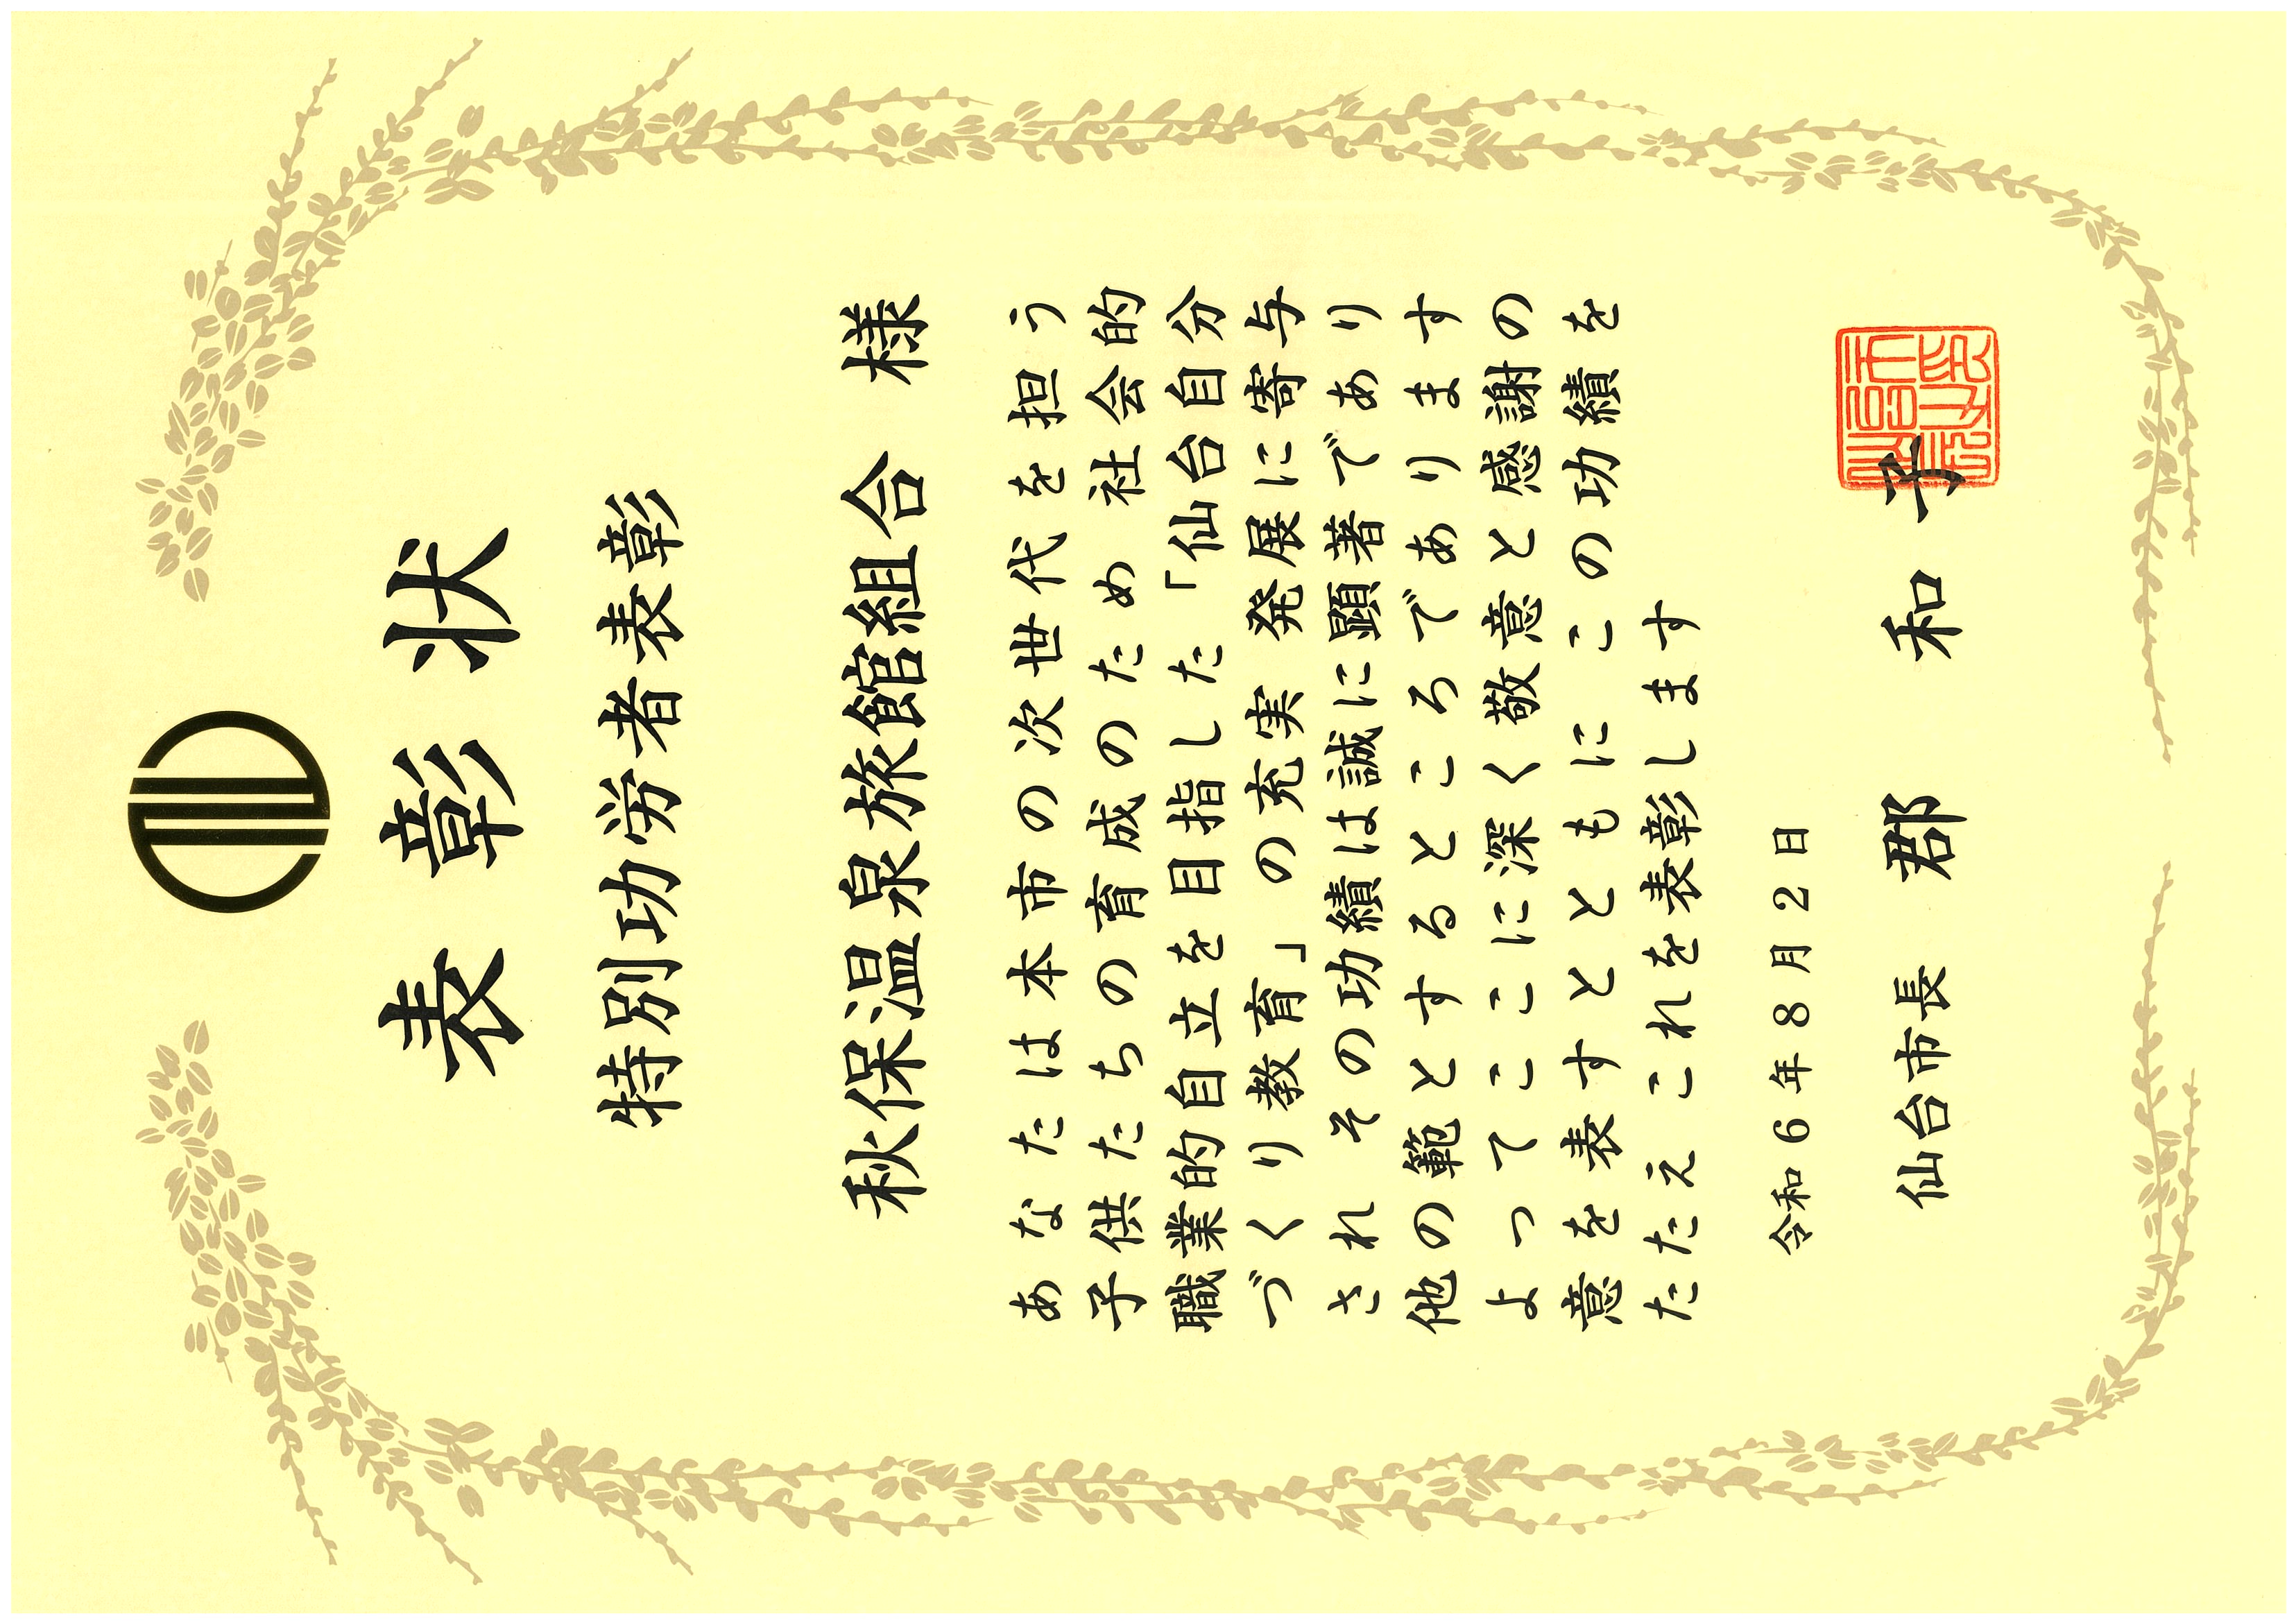 表彰状
特別功労者表彰
秋保温泉旅館組合 様
あなたは本市の次世代を担う
子供たちの育成のため 社会的
職業的自立を目指した「仙台自分
づくり教育」の充実 発展に寄与
され その功績は誠に顕著であり
他の範とするところであります
よってここに深く敬意と感謝の
意を表すとともに この功績を
たたえ これを表彰します
令和6年8月2日
仙台市長 郡 和子
仙台市長之印